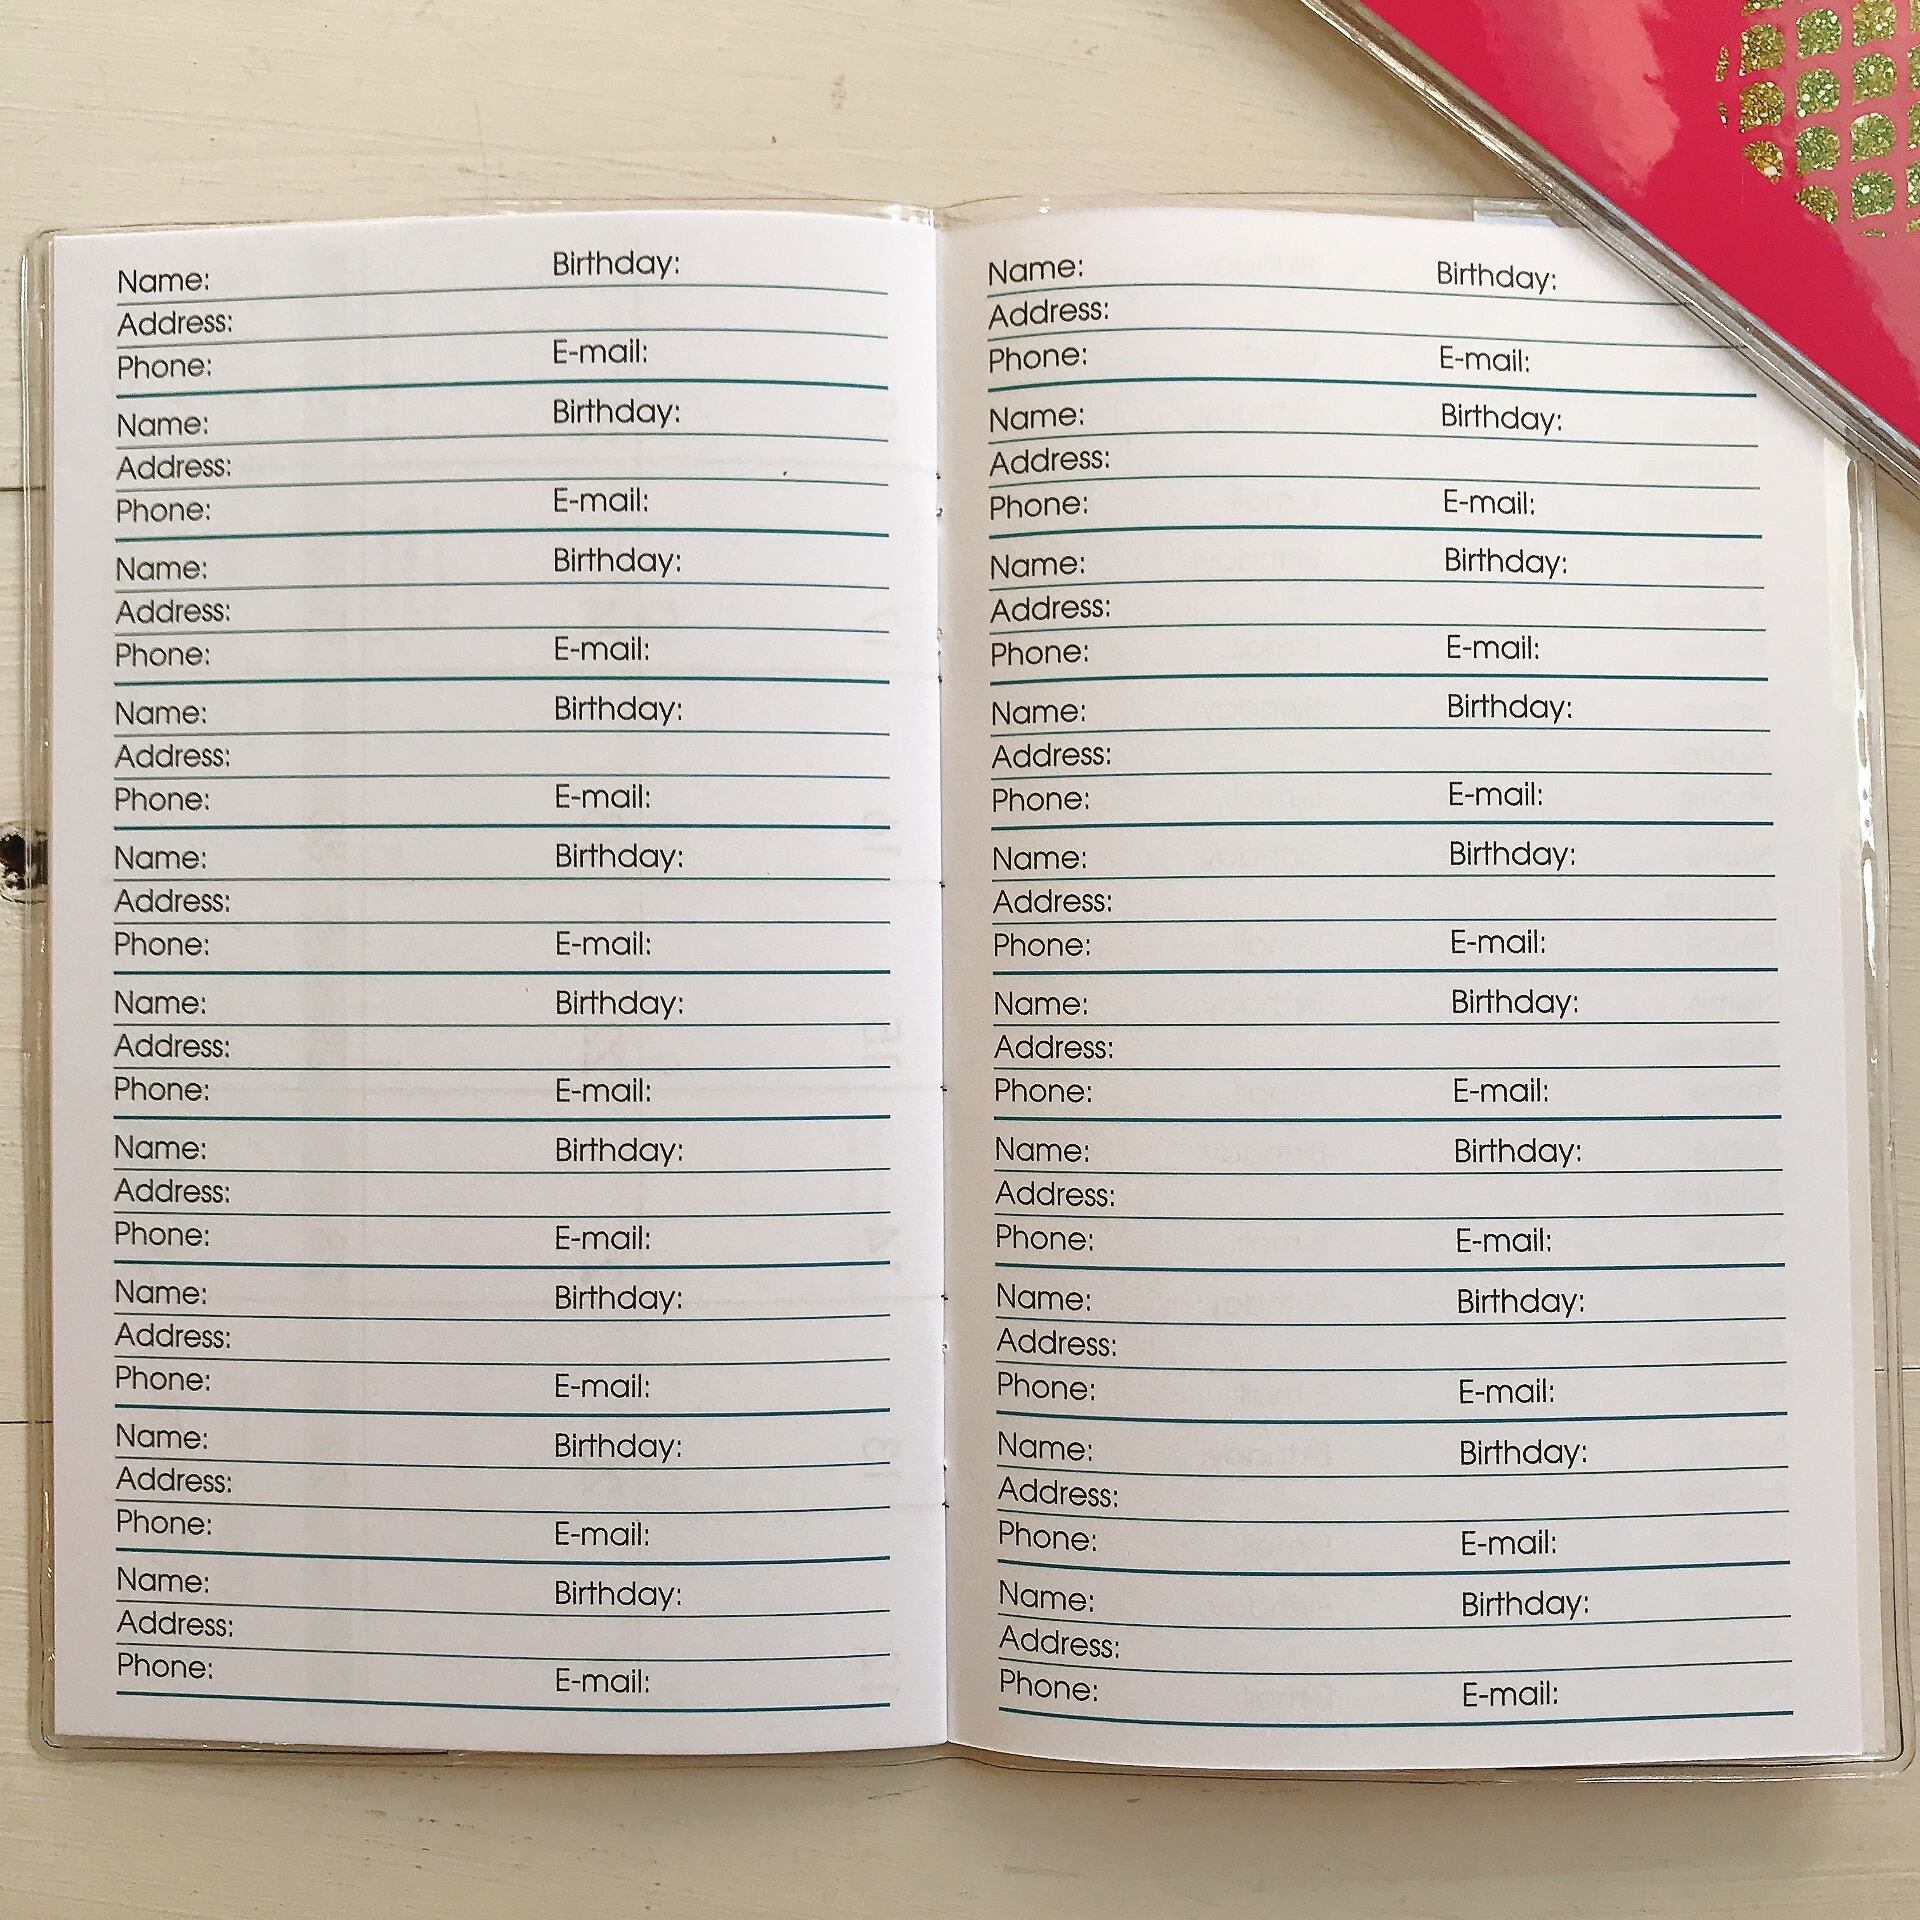 Name: Birthday:
Address:
Phone: E-mail:
Name: Birthday:
Address:
Phone: E-mail:
Name: Birthday:
Address:
Phone: E-mail:
Name: Birthday:
Address:
Phone: E-mail:
Name: Birthday:
Address:
Phone: E-mail:
Name: Birthday:
Address:
Phone: E-mail:
Name: Birthday:
Address:
Phone: E-mail:
Name: Birthday:
Address:
Phone: E-mail:
Name: Birthday:
Address:
Phone: E-mail:
Name: Birthday:
Address:
Phone: E-mail:
Name: Birthday:
Address:
Phone: E-mail:
Name: Birthday:
Address:
Phone: E-mail:
Name: Birthday:
Address:
Phone: E-mail:
Name: Birthday:
Address:
Phone: E-mail:
Name: Birthday:
Address:
Phone: E-mail:
Name: Birthday:
Address:
Phone: E-mail:
Name: Birthday:
Address:
Phone: E-mail:
Name: Birthday:
Address:
Phone: E-mail:
Name: Birthday:
Address:
Phone: E-mail:
Name: Birthday:
Address:
Phone: E-mail: